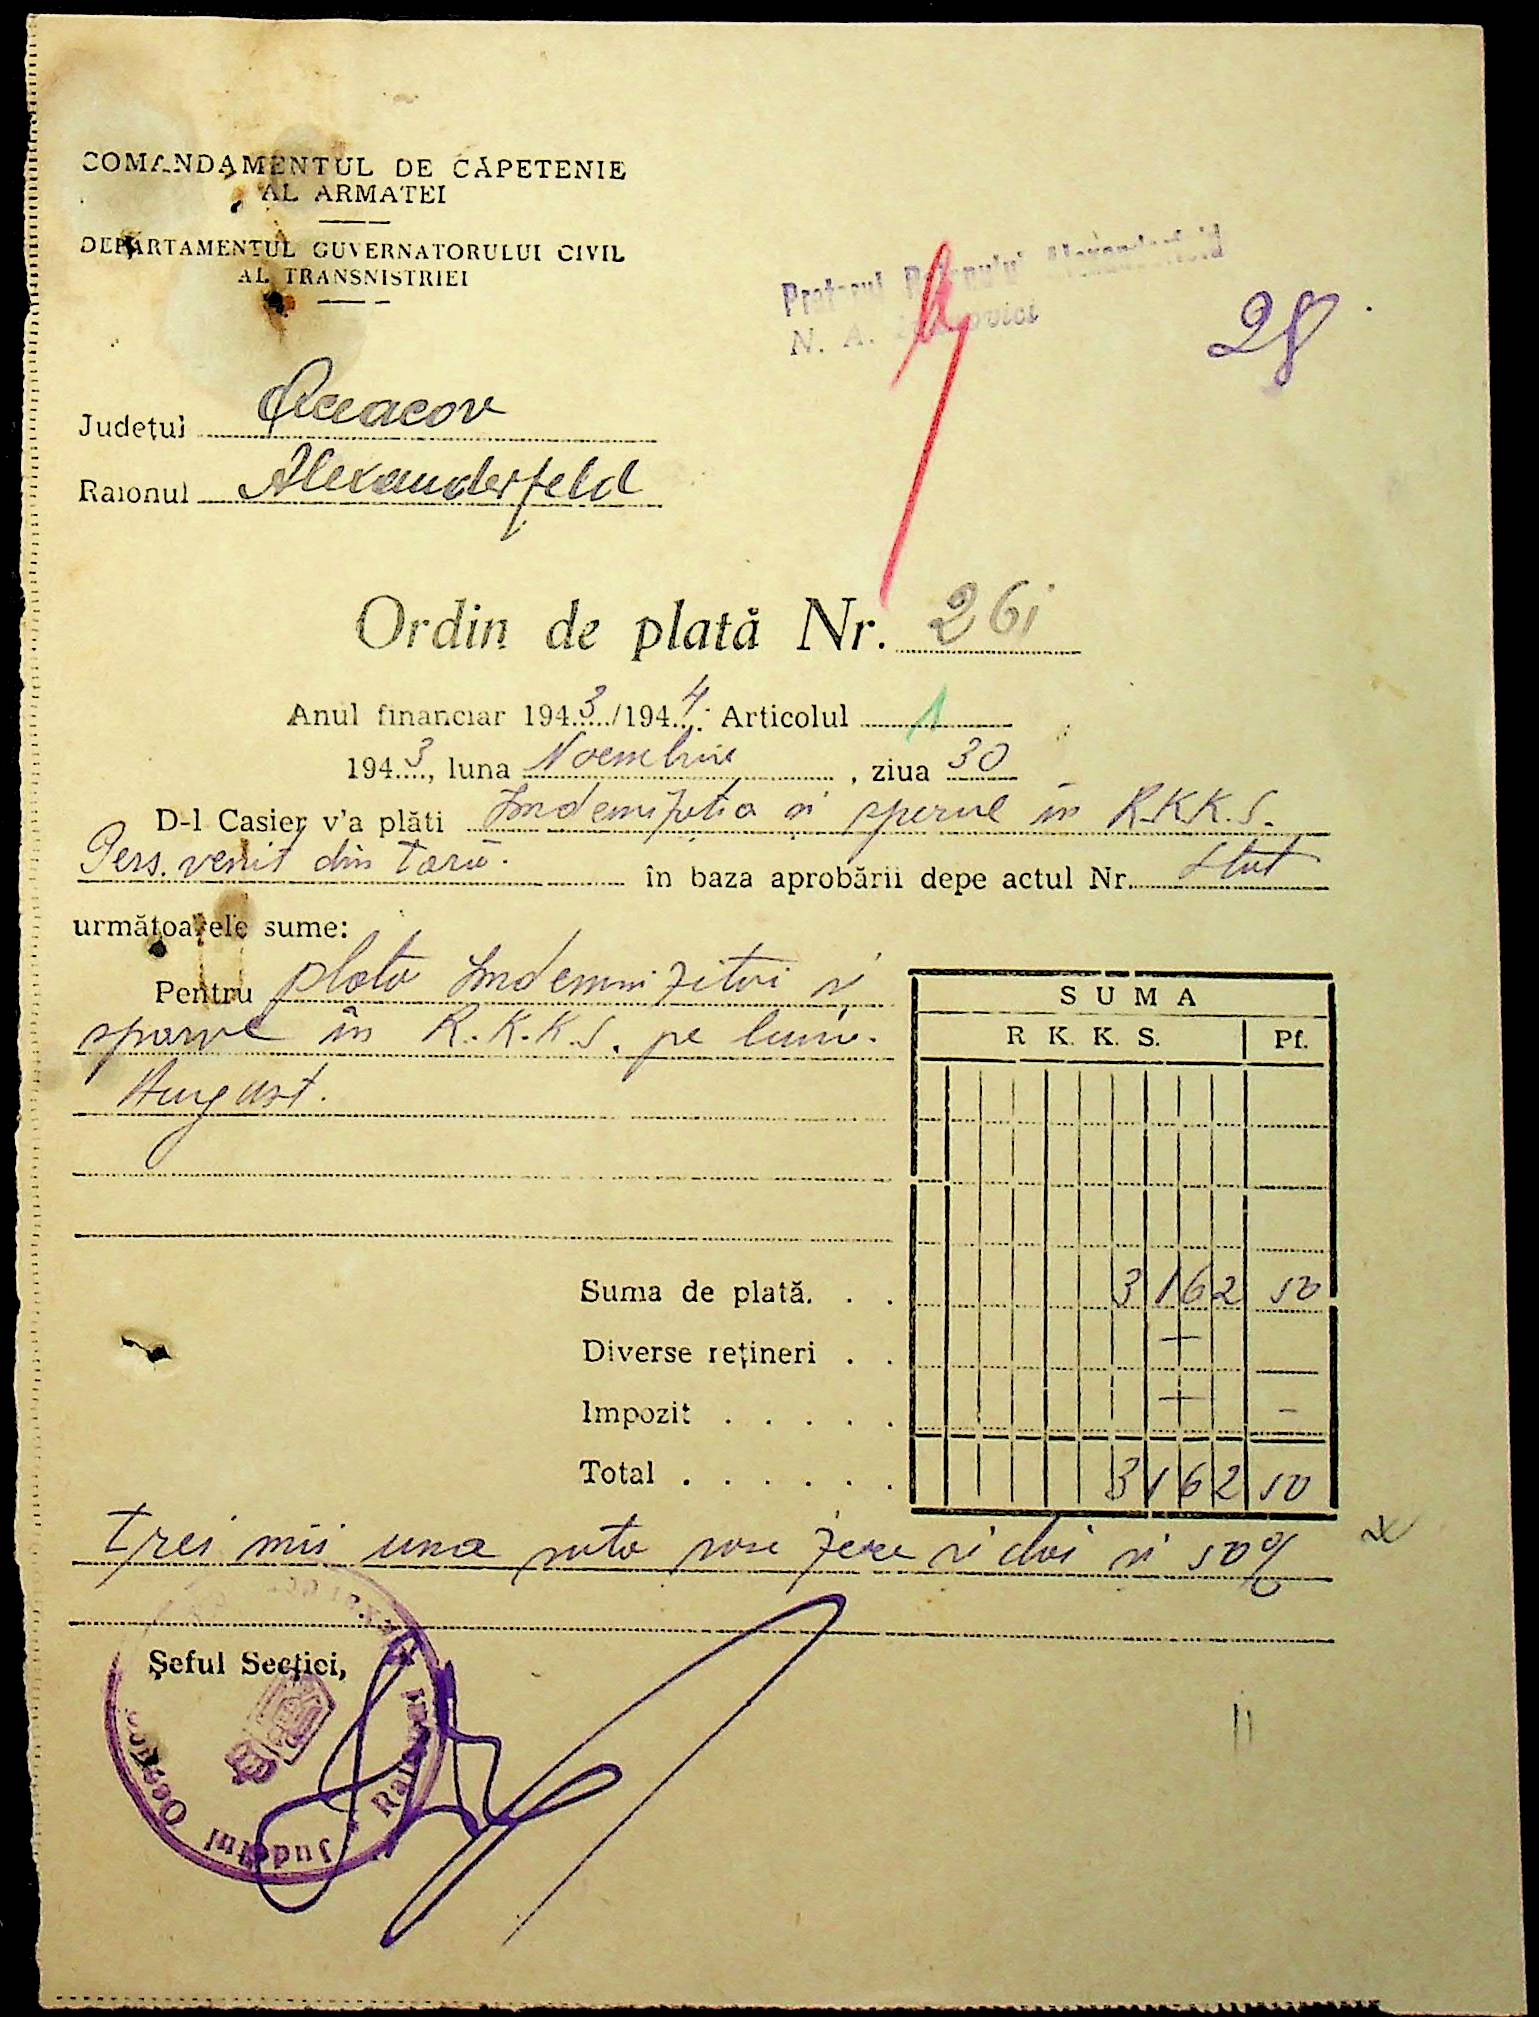 COMANDAMENTUL DE CĂPETENIE
AL ARMATEI
DEPARTAMENTUL GUVERNATORULUI CIVIL
AL TRANSNISTRIEI
N. A.
28
Județul Oceacov
Raionul Alexanderfeld
Ordin de plată Nr. 261
Anul financiar 1943/1944. Articolul 1
1943, luna Noembrie, ziua 30
D-l Casier v'a plăti Indemizatia si sporul in R.K.K.S.
Pers. venit din tară. în baza aprobării depe actul Nr. Stat
următoarele sume:
Pentru plata Indemnizitiei si
sporul în R.K.K.S. pe luna
August.
SUMA
R K. K. S. Pf.
Suma de plată. . . 3162 50
Diverse rețineri . . —
Impozit . . . . . — —
Total . . . . . . 3162 50
trei mii una suta sase zece si doi si 50%
Șeful Secției,
Județul Oceacov